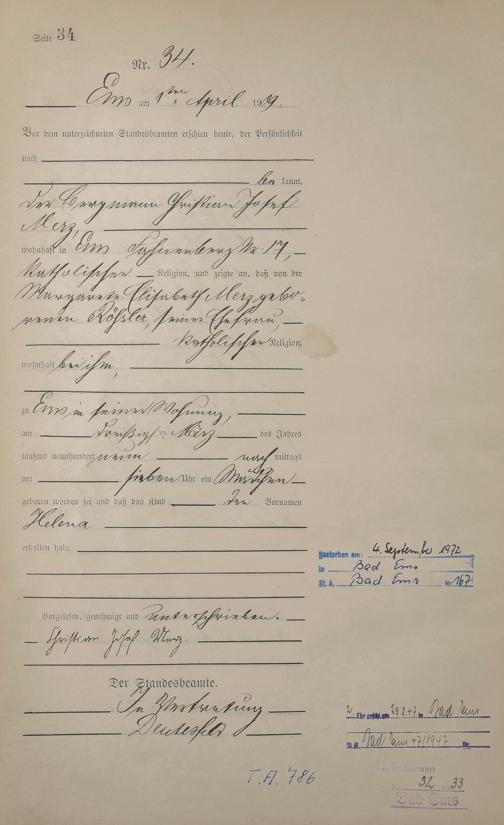 Seite 34
Nr. 34.
Ems am 1ten April 1909.
Vor dem unterzeichneten Standesbeamten erschien heute, der Persönlichkeit
nach
be kannt,
der Bergmann Christian Josef
Merz,
wohnhaft in Ems Hahnenbergstr 17,
katholischer Religion, und zeigte an, daß von der
Margarete Elisabeth Merz gebo-
renen Rößler, seiner Ehefrau,
katholischer Religion,
wohnhaft bei ihm,
zu Ems in seiner Wohnung,
am dreißigsten März des Jahres
tausend neunhundert neun nach mittags
um sieben Uhr ein Mädchen
geboren worden sei und daß das Kind den Vornamen
Helena
erhalten habe.
Vorgelesen, genehmigt und unterschrieben.
Christian Josef Merz.
Der Standesbeamte.
In Vertretung
Gestorben am: 4. September 1972
in Bad Ems
St. A. Bad Ems Nr. 167
Bad Ems
St. A. Bad Ems 47/1947 Nr.
Geheiratet
32 33
Bad Ems
T.A. 786